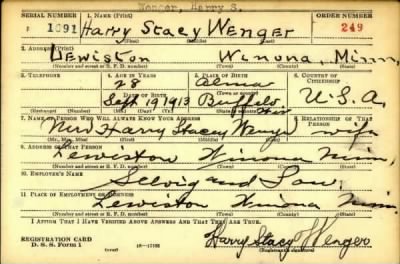 Wenger, Harry S.
SERIAL NUMBER 1. NAME (Print) ORDER NUMBER
1091 Harry Stacy Wenger 249
2. ADDRESS (Print)
Lewiston Winona, Minn,
(Number and street or R. F. D. number) (Town) (County) (State)
3. TELEPHONE 4. AGE IN YEARS 5. PLACE OF BIRTH 6. COUNTRY OF CITIZENSHIP
28 Alma
DATE OF BIRTH (Town or county)
Sept 19 1913 Buffalo Wis U.S.A.
(Exchange) (Number) (Mo.) (Day) (Yr.) (State or country)
7. NAME OF PERSON WHO WILL ALWAYS KNOW YOUR ADDRESS 8. RELATIONSHIP OF THAT PERSON
Mrs Harry Stacey Wenger wife
(Mr., Mrs., Miss) (First) (Middle) (Last)
9. ADDRESS OF THAT PERSON
Lewiston Winona Minn,
(Number and street or R. F. D. number) (Town) (County) (State)
10. EMPLOYER'S NAME
Selvig and Son,
11. PLACE OF EMPLOYMENT OR BUSINESS
Lewiston Winona Minn.
(Number and street or R. F. D. number) (Town) (County) (State)
I AFFIRM THAT I HAVE VERIFIED ABOVE ANSWERS AND THAT THEY ARE TRUE.
REGISTRATION CARD
D. S. S. Form 1
Harry Stacy Wenger
(Registrant's signature)